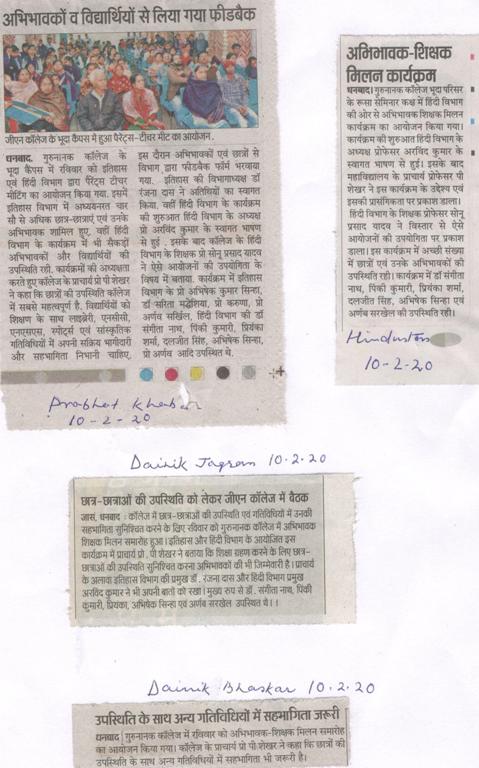 अभिभावकों व विद्यार्थियों से लिया गया फीडबैक
जीएन कॉलेज के भूदा कैंपस में हुआ पैरेंट्स-टीचर मीट का आयोजन.
धनबाद. गुरुनानक कॉलेज के
भूदा कैंपस में रविवार को इतिहास
एवं हिंदी विभाग द्वारा पैरेंट्स टीचर
मीटिंग का आयोजन किया गया. इसमें
इतिहास विभाग में अध्ययनरत चार
सौ से अधिक छात्र-छात्राएं एवं उनके
अभिभावक शामिल हुए. वहीं हिंदी
विभाग के कार्यक्रम में भी सैकड़ों
अभिभावकों और विद्यार्थियों की
उपस्थिति रही. कार्यक्रमों की अध्यक्षता
करते हुए कॉलेज के प्राचार्य प्रो पी शेखर
ने कहा कि छात्रों की उपस्थिति कॉलेज
में सबसे महत्वपूर्ण है. विद्यार्थियों को
शिक्षण के साथ लाइब्रेरी, एनसीसी,
एनएसएस, स्पोर्ट्स एवं सांस्कृतिक
गतिविधियों में अपनी सक्रिय भागीदारी
और सहभागिता निभानी चाहिए.
इस दौरान अभिभावकों एवं छात्रों से
विभाग द्वारा फीडबैक फॉर्म भरवाया
गया. इतिहास की विभागाध्यक्ष डॉ
रंजना दास ने अतिथियों का स्वागत
किया. वहीं हिंदी विभाग के कार्यक्रम
की शुरुआत हिंदी विभाग के अध्यक्ष
प्रो अरविंद कुमार के स्वागत भाषण
से हुई . इसके बाद कॉलेज के हिंदी
विभाग के शिक्षक प्रो सोनू प्रसाद यादव
ने ऐसे आयोजनों की उपयोगिता के
विषय में बताया. कार्यक्रम में इतिहास
विभाग के प्रो अभिषेक कुमार सिन्हा,
डॉ सरिता मद्धेशिया, प्रो करुणा, प्रो
अर्णव सर्खिल, हिंदी विभाग की डॉ
संगीता नाथ, पिंकी कुमारी, प्रियंका
शर्मा, दलजीत सिंह, अभिषेक सिन्हा,
प्रो अर्णव आदि उपस्थित थे.
Prabhat Khabar
10-2-20
अभिभावक-शिक्षक
मिलन कार्यक्रम
धनबाद। गुरुनानक कॉलेज भूदा परिसर
के रूसा सेमिनार कक्ष में हिंदी विभाग
की ओर से अभिभावक शिक्षक मिलन
कार्यक्रम का आयोजन किया गया।
कार्यक्रम की शुरुआत हिंदी विभाग के
अध्यक्ष प्रोफेसर अरविंद कुमार के
स्वागत भाषण से हुई। इसके बाद
महाविद्यालय के प्राचार्य प्रोफेसर पी
शेखर ने इस कार्यक्रम के उद्देश्य एवं
इसकी प्रासंगिकता पर प्रकाश डाला।
हिंदी विभाग के शिक्षक प्रोफेसर सोनू
प्रसाद यादव ने विस्तार से ऐसे
आयोजनों की उपयोगिता पर प्रकाश
डाला। इस कार्यक्रम में अच्छी संख्या
में छात्रों एवं उनके अभिभावकों की
उपस्थिति रही। कार्यक्रम में डॉ संगीता
नाथ, पिंकी कुमारी, प्रियंका शर्मा,
दलजीत सिंह, अभिषेक सिन्हा एवं
अर्णव सरखेल की उपस्थिति रही।
Hindustan
10-2-20
Dainik Jagran 10.2.20
छात्र-छात्राओं की उपस्थिति को लेकर जीएन कॉलेज में बैठक
जासं, धनबाद : कॉलेज में छात्र-छात्राओं की उपस्थिति एवं गतिविधियों में उनकी
सहभागिता सुनिश्चित करने के लिए रविवार को गुरुनानक कॉलेज में अभिभावक
शिक्षक मिलन समारोह हुआ। इतिहास और हिंदी विभाग के आयोजित इस
कार्यक्रम में प्राचार्य प्रो. पी शेखर ने बताया कि शिक्षा ग्रहण करने के लिए छात्र-
छात्राओं की उपस्थिति सुनिश्चित कराना अभिभावकों की भी जिम्मेवारी है। प्राचार्य
के अलावा इतिहास विभाग की प्रमुख डॉ. रंजना दास और हिंदी विभाग प्रमुख
अरविंद कुमार ने भी अपनी बातों को रखा। मुख्य रुप से डॉ. संगीता नाथ, पिंकी
कुमारी, प्रियंका, अभिषेक सिन्हा एवं अर्णब सरखेल उपस्थित थे।।
Dainik Bhaskar 10.2.20
उपस्थिति के साथ अन्य गतिविधियों में सहभागिता जरूरी
धनबाद | गुरुनानक कॉलेज में रविवार को अभिभावक-शिक्षक मिलन समारोह
का आयोजन किया गया। कॉलेज के प्राचार्य प्रो पी शेखर ने कहा कि छात्रों की
उपस्थिति के साथ अन्य गतिविधियों में सहभागिता भी जरूरी है।